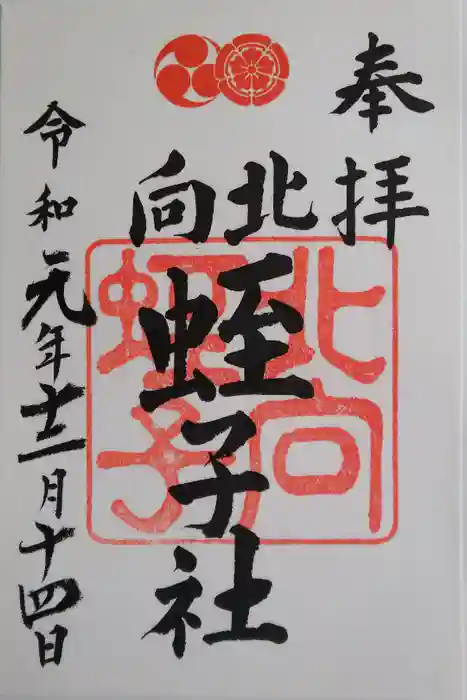 奉拝
北向
蛭子社
北向
蛭子
令和元年十二月十四日